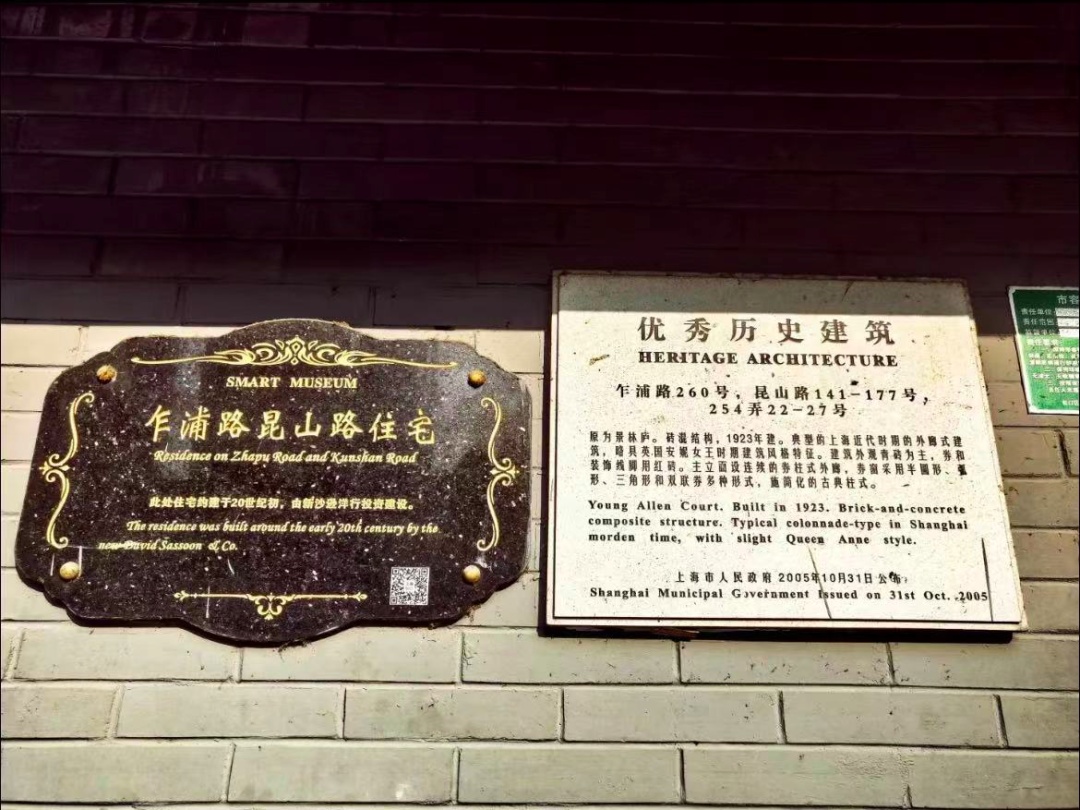 SMART MUSEUM
乍浦路昆山路住宅
Residence on Zhapu Road and Kunshan Road
此处住宅约建于20世纪初，由新沙逊洋行投资建设。
The residence was built around the early 20th century by the
new David Sassoon & Co.
优秀历史建筑
HERITAGE ARCHITECTURE
乍浦路260号，昆山路141-177号，
254弄22-27号
原为景林庐。砖混结构，1923年建。典型的上海近代时期的外廊式建
筑，略具英国安妮女王时期建筑风格特征。建筑外观青砖为主，券和
装饰线脚用红砖。主立面设连续的券柱式外廊，券窗采用半圆形、弧
形、三角形和双联券多种形式，施简化的古典柱式。
Young Allen Court. Built in 1923. Brick-and-concrete
composite structure. Typical colonnade-type in Shanghai
morden time, with slight Queen Anne style.
上海市人民政府 2005年10月31日公布
Shanghai Municipal Government Issued on 31st Oct. 2005
市容
责任单位
责任范围